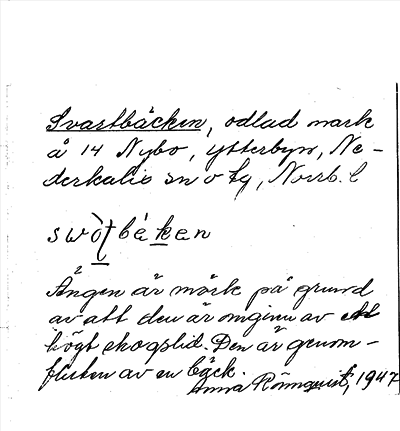 Svartbäcken, odlad mark
å 14 Nybo, Ytterbyn, Ne-
derkalix sn o tg, Norrb. l
swo̱ʈbèḵen
Ängen är mörk på grund
av att den är omgiven av ett
högt skogslid. Den är genom-
fluten av en bäck.
Anna Rönnquist, 1947